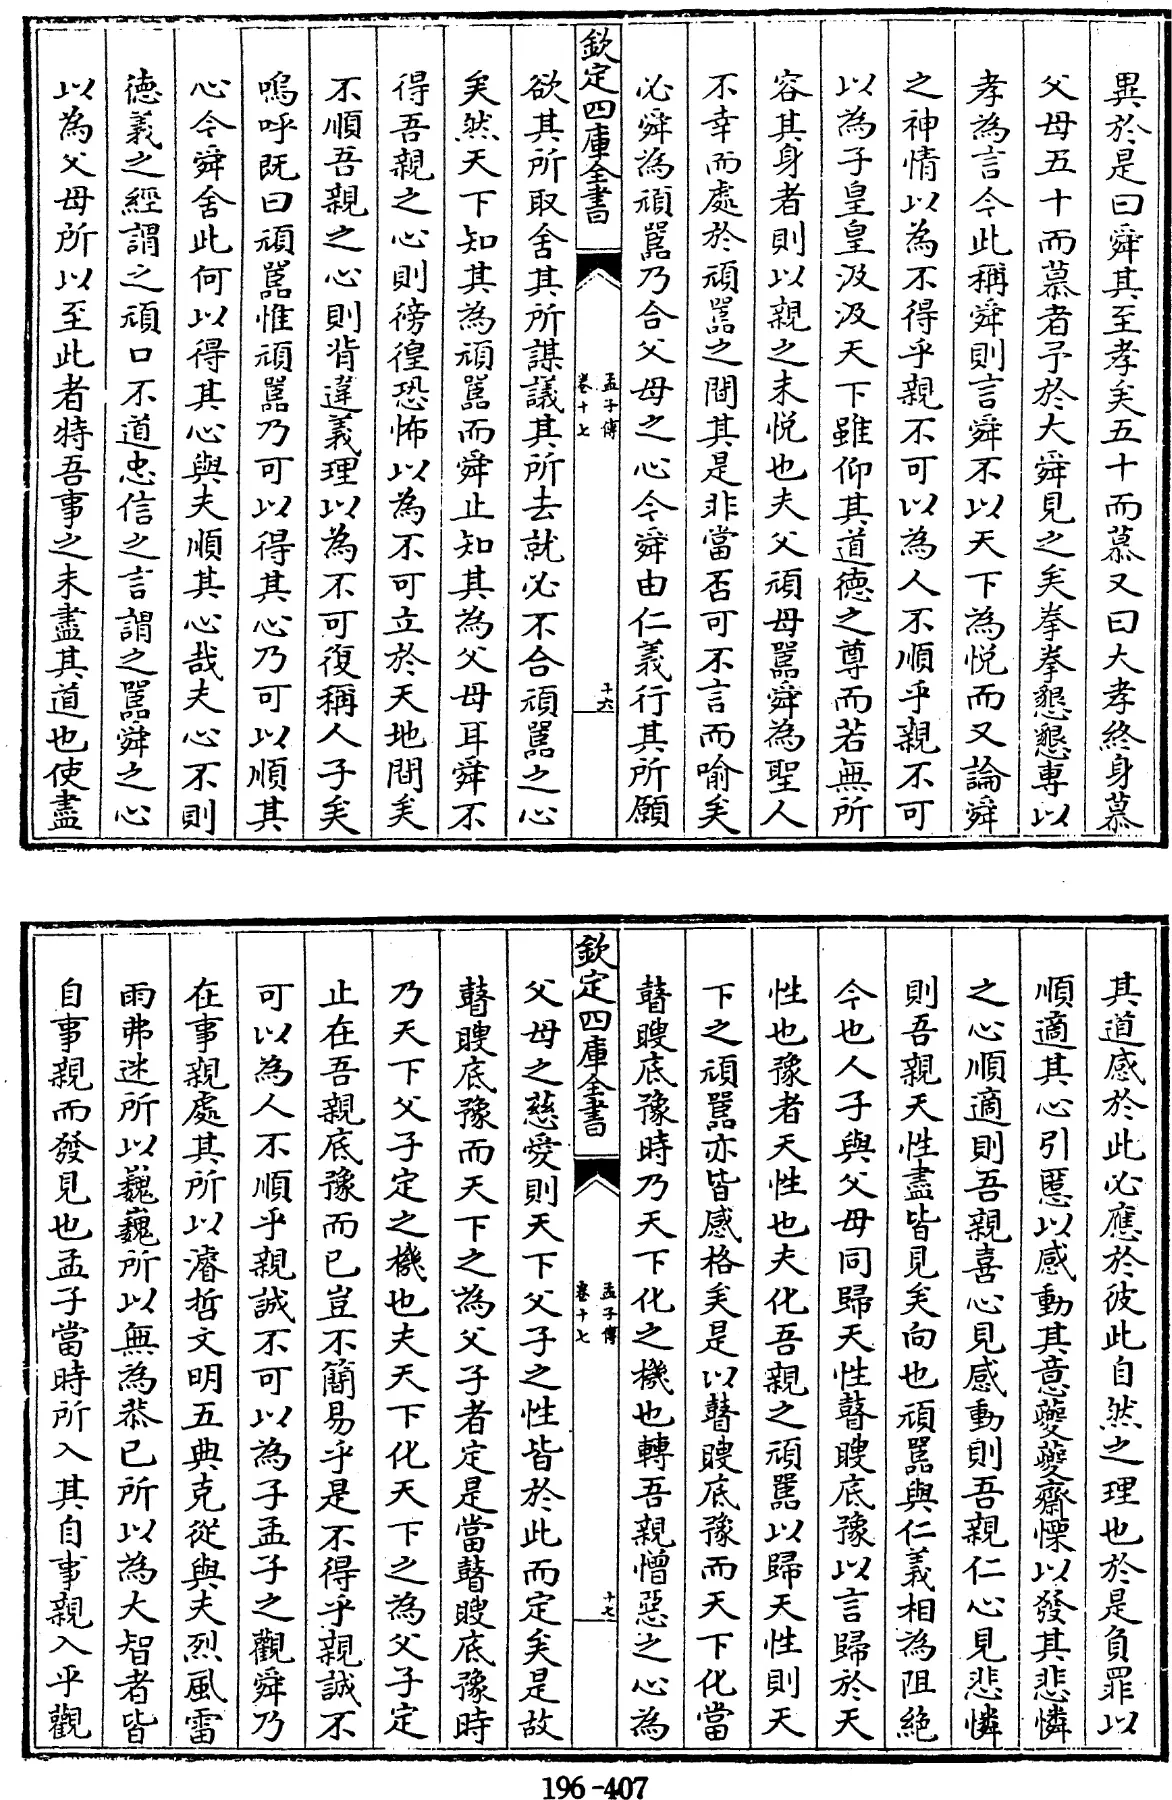 異於是曰舜其至孝矣五十而慕又曰大孝終身慕
父母五十而慕者予於大舜見之矣拳拳懇懇専以
孝為言今此稱舜則言舜不以天下為悦而又論舜
之神情以為不得乎親不可以為人不順乎親不可
以為子皇皇汲汲天下雖仰其道徳之尊而若無所
容其身者則以親之未悦也夫父頑母嚚舜為聖人
不幸而處於頑嚚之間其是非當否可不言而喻矣
必舜為頑嚚乃合父母之心今舜由仁義行其所願
欽定四庫全書
孟子傳
卷十七
十六
欲其所取舍其所謀議其所去就必不合頑嚚之心
矣然天下知其為頑嚚而舜止知其為父母耳舜不
得吾親之心則徬徨恐怖以為不可立於天地間矣
不順吾親之心則背違義理以為不可復稱人子矣
嗚呼既曰頑嚚惟頑嚚乃可以得其心乃可以順其
心今舜舍此何以得其心與夫順其心哉夫心不則
徳義之經謂之頑口不道忠信之言謂之嚚舜之心
以為父母所以至此者特吾事之未盡其道也使盡
其道感於此必應於彼此自然之理也於是負罪以
順適其心引慝以感動其意夔夔齋慄以發其悲憐
之心順適則吾親喜心見感動則吾親仁心見悲憐
則吾親天性盡皆見矣向也頑嚚與仁義相為阻絶
今也人子與父母同歸天性瞽瞍底豫以言歸於天
性也豫者天性也夫化吾親之頑嚚以歸天性則天
下之頑嚚亦皆感格矣是以瞽瞍底豫而天下化當
瞽瞍底豫時乃天下化之機也轉吾親憎惡之心為
欽定四庫全書
孟子傳
卷十七
十七
父母之慈愛則天下父子之性皆於此而定矣是故
瞽瞍底豫而天下之為父子者定是當瞽瞍底豫時
乃天下父子定之機也夫天下化天下之為父子定
止在吾親底豫而已豈不簡易乎是不得乎親誠不
可以為人不順乎親誠不可以為子孟子之觀舜乃
在事親處其所以濬哲文明五典克從與夫烈風雷
雨弗迷所以巍巍所以無為恭已所以為大智者皆
自事親而發見也孟子當時所入其自事親入乎觀
196-407